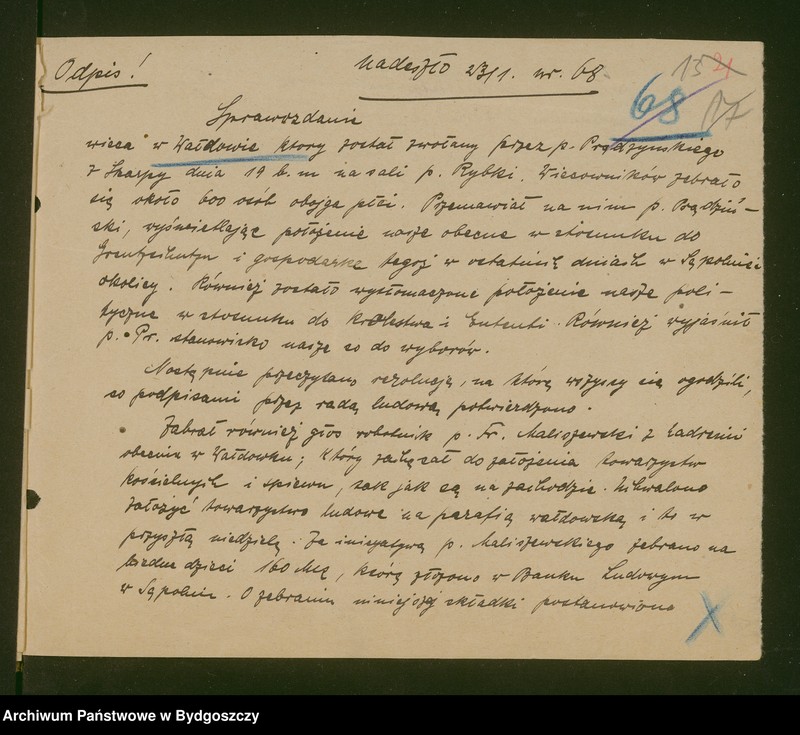 Odpis!
Nadeszło 23/1. nr. 68
15 21
68 17
Sprawozdanie
wieca w Wałdowie który został zwołany przez p. Prądzyńskiego
z Skarpy dnia 19 b.m na sali p. Rybki. Wiecowników zebrało
się około 600 osób obojga płci. Przemawiał na nim p. Prądzyń-
ski, wyświetlając położenie nasze obecne w stosunku do
Grentzschutzu i gospodarkę tegoż w ostatnich dniach w Sępolnie i
okolicy. Również zostało wytłomaczone położenie nasze poli-
tyczne w stosunku do Królestwa i Ententi. Również wyjaśnił
p. Pr. stanowisko nasze co do wyborów.
Następnie przeczytano rezolucją, na którą wszyscy się zgodzili,
co podpisami przez radą ludową potwierdzono.
Zabrał również głos robotnik p. Fr. Maliszewski z
obecnie w Wałdówku; który zachęcał do założenia towarzystw
kościelnych i śpiewu, tak jak są na zachodzie. Uchwalono
założyć towarzystwo ludowe na parafią wałdowską i to w
przyszłą niedzielę. Za inicjatywą p. Maliszewskiego zebrano na
biedne dzieci 160 Mk, którą złożono w Banku Ludowym
w Sępolnie. O zebraniu niniejszej składki postanowiono
X
Archiwum Państwowe w Bydgoszczy